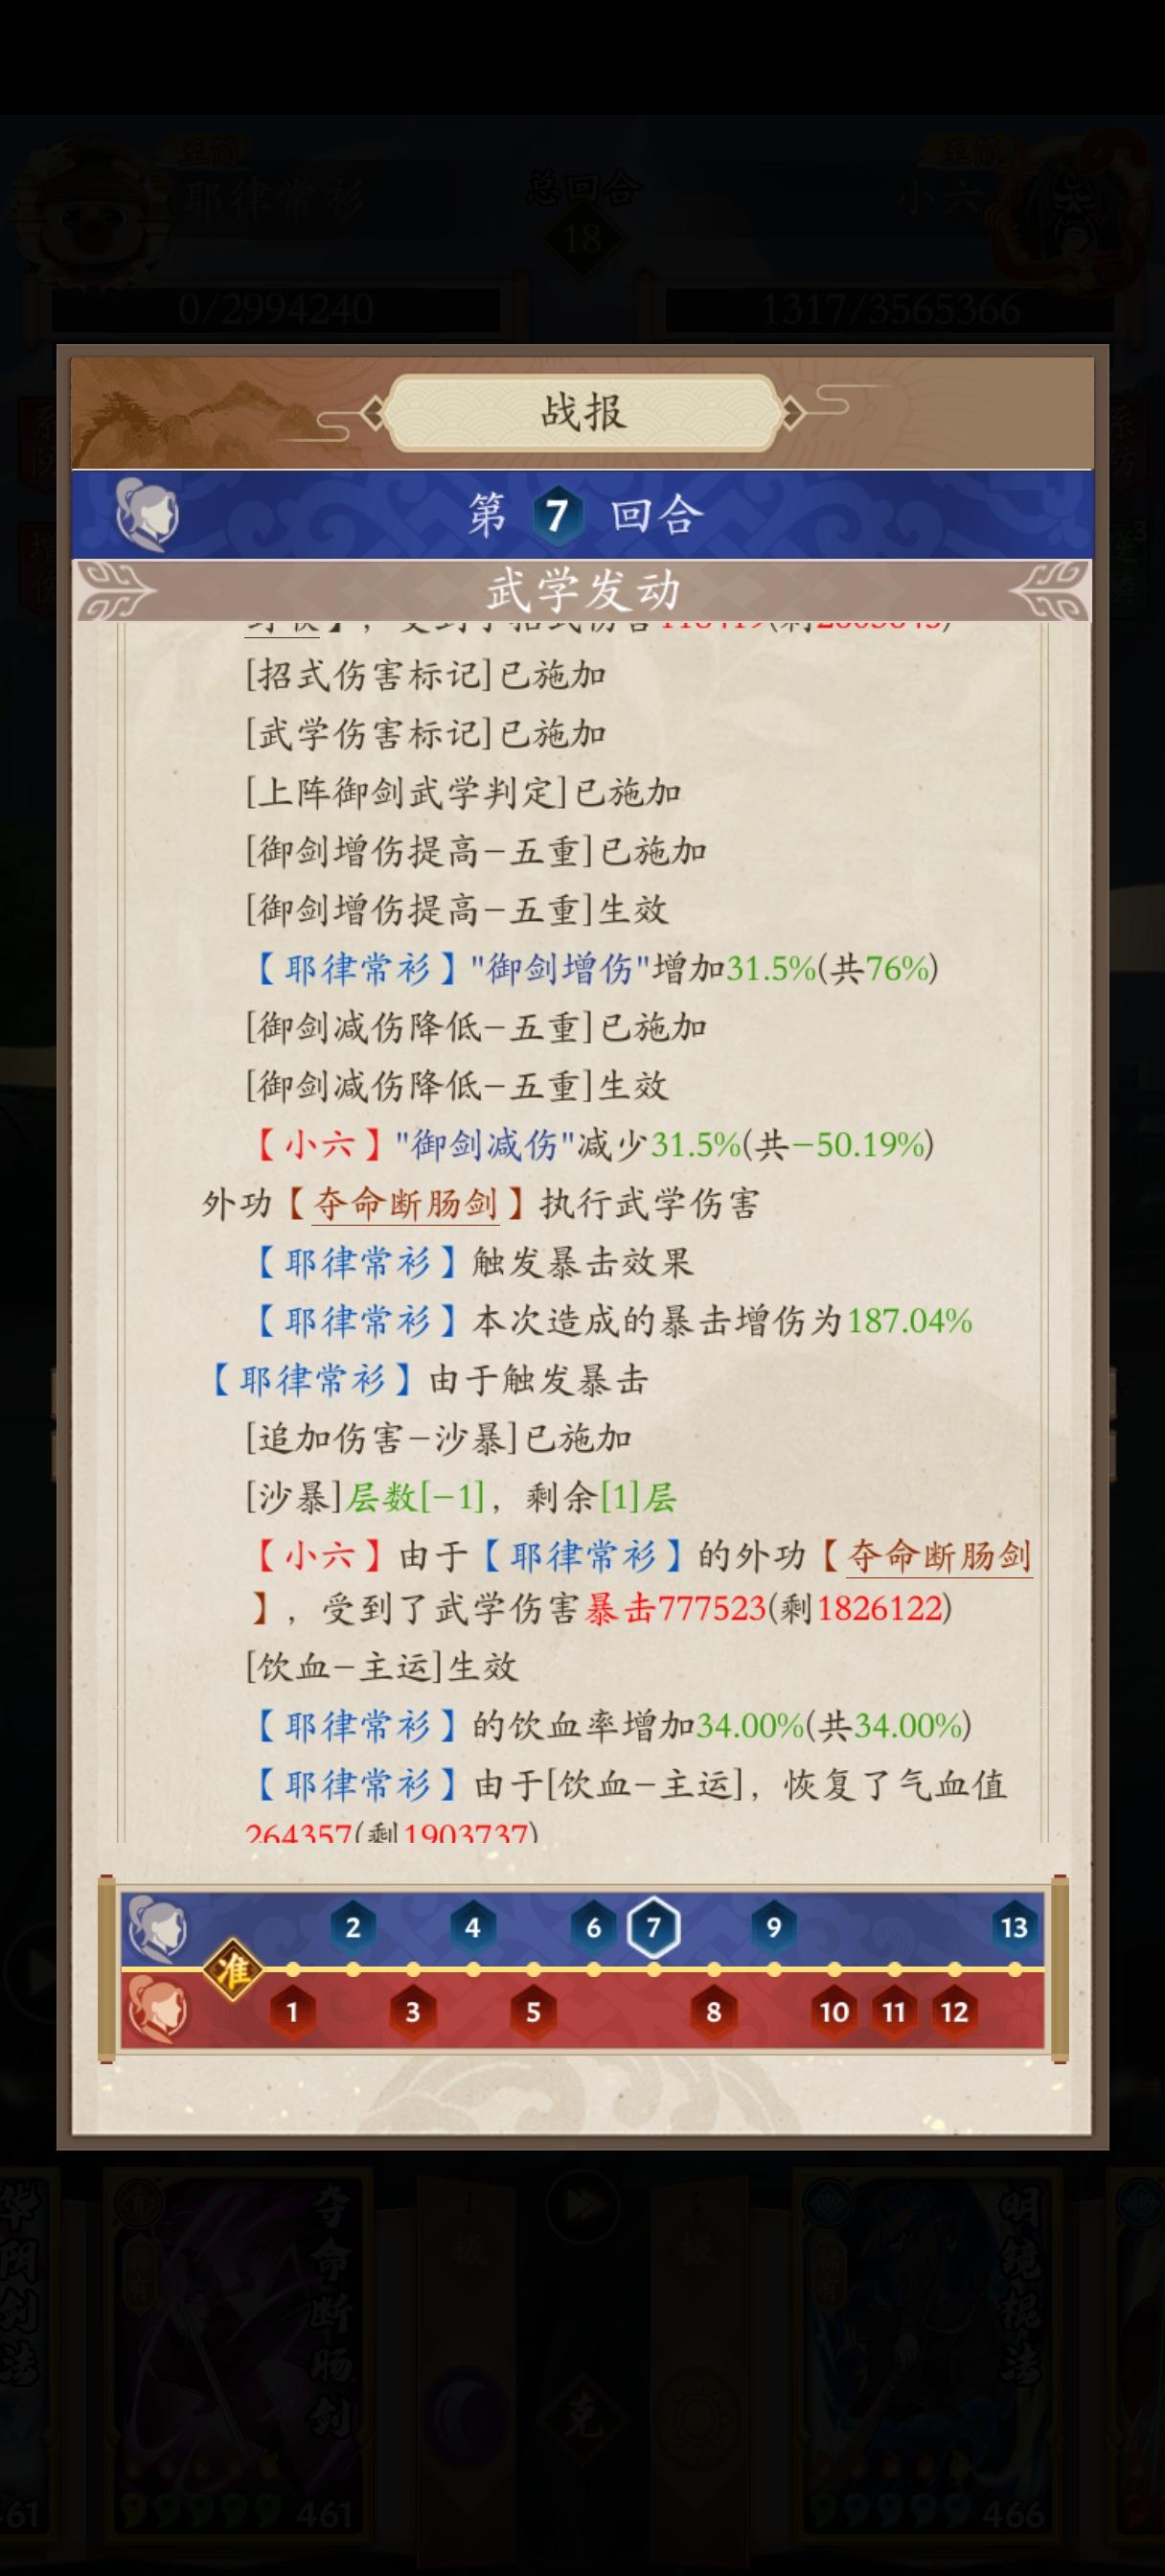 至简
耶律常衫
总回合
18
至简
小六
0/2994240
1317/3565366
战报
第 7 回合
武学发动
[招式伤害标记]已施加
[武学伤害标记]已施加
[上阵御剑武学判定]已施加
[御剑增伤提高-五重]已施加
[御剑增伤提高-五重]生效
【耶律常衫】"御剑增伤"增加31.5%(共76%)
[御剑减伤降低-五重]已施加
[御剑减伤降低-五重]生效
【小六】"御剑减伤"减少31.5%(共-50.19%)
外功【夺命断肠剑】执行武学伤害
【耶律常衫】触发暴击效果
【耶律常衫】本次造成的暴击增伤为187.04%
【耶律常衫】由于触发暴击
[追加伤害-沙暴]已施加
[沙暴]层数[-1]，剩余[1]层
【小六】由于【耶律常衫】的外功【夺命断肠剑
】，受到了武学伤害暴击777523(剩1826122)
[饮血-主运]生效
【耶律常衫】的饮血率增加34.00%(共34.00%)
【耶律常衫】由于[饮血-主运]，恢复了气血值
264357(剩1903737)
2 4 6 7 9 13
准
1 3 5 8 10 11 12
夺命断肠剑
461
克
明镜棍法
466